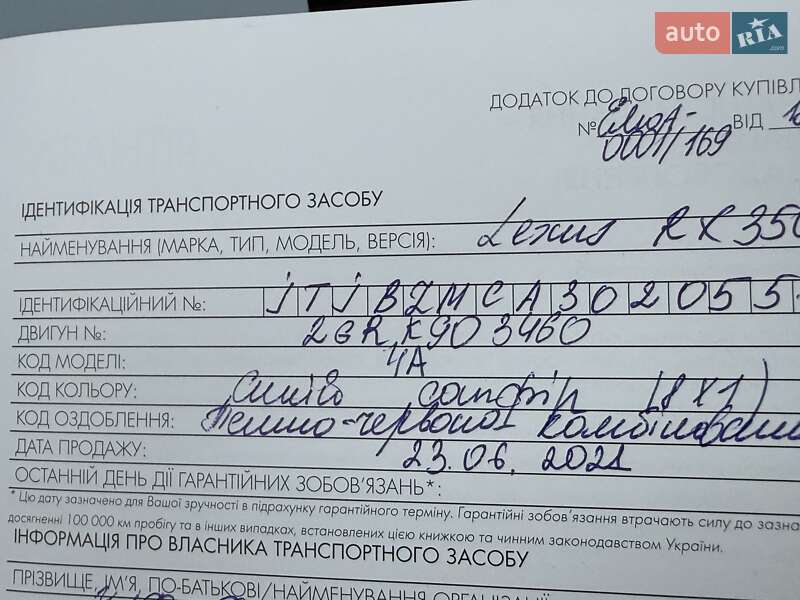 auto RIA.com
ДОДАТОК ДО ДОГОВОРУ КУПІВЛ
№ ЕлюА- ВІД 1
0001/169
ІДЕНТИФІКАЦІЯ ТРАНСПОРТНОГО ЗАСОБУ
НАЙМЕНУВАННЯ (МАРКА, ТИП, МОДЕЛЬ, ВЕРСІЯ): Lexus RX 350
ІДЕНТИФІКАЦІЙНИЙ №: JTJBZMCA302055
ДВИГУН №: 2GRK903460
КОД МОДЕЛІ: 4A
КОД КОЛЬОРУ: Синій сапфір (8X1)
КОД ОЗДОБЛЕННЯ: Темно-червоної комбіновани
ДАТА ПРОДАЖУ: 23.06.2021
ОСТАННІЙ ДЕНЬ ДІЇ ГАРАНТІЙНИХ ЗОБОВ'ЯЗАНЬ*:
* Цю дату зазначено для Вашої зручності в підрахунку гарантійного терміну. Гарантійні зобов'язання втрачають силу до зазна
досягненні 100 000 км пробігу та в інших випадках, встановлених цією книжкою та чинним законодавством України.
ІНФОРМАЦІЯ ПРО ВЛАСНИКА ТРАНСПОРТНОГО ЗАСОБУ
ПРІЗВИЩЕ, ІМ'Я, ПО-БАТЬКОВІ/НАЙМЕНУВАННЯ ОРГАНІЗАЦІЇ